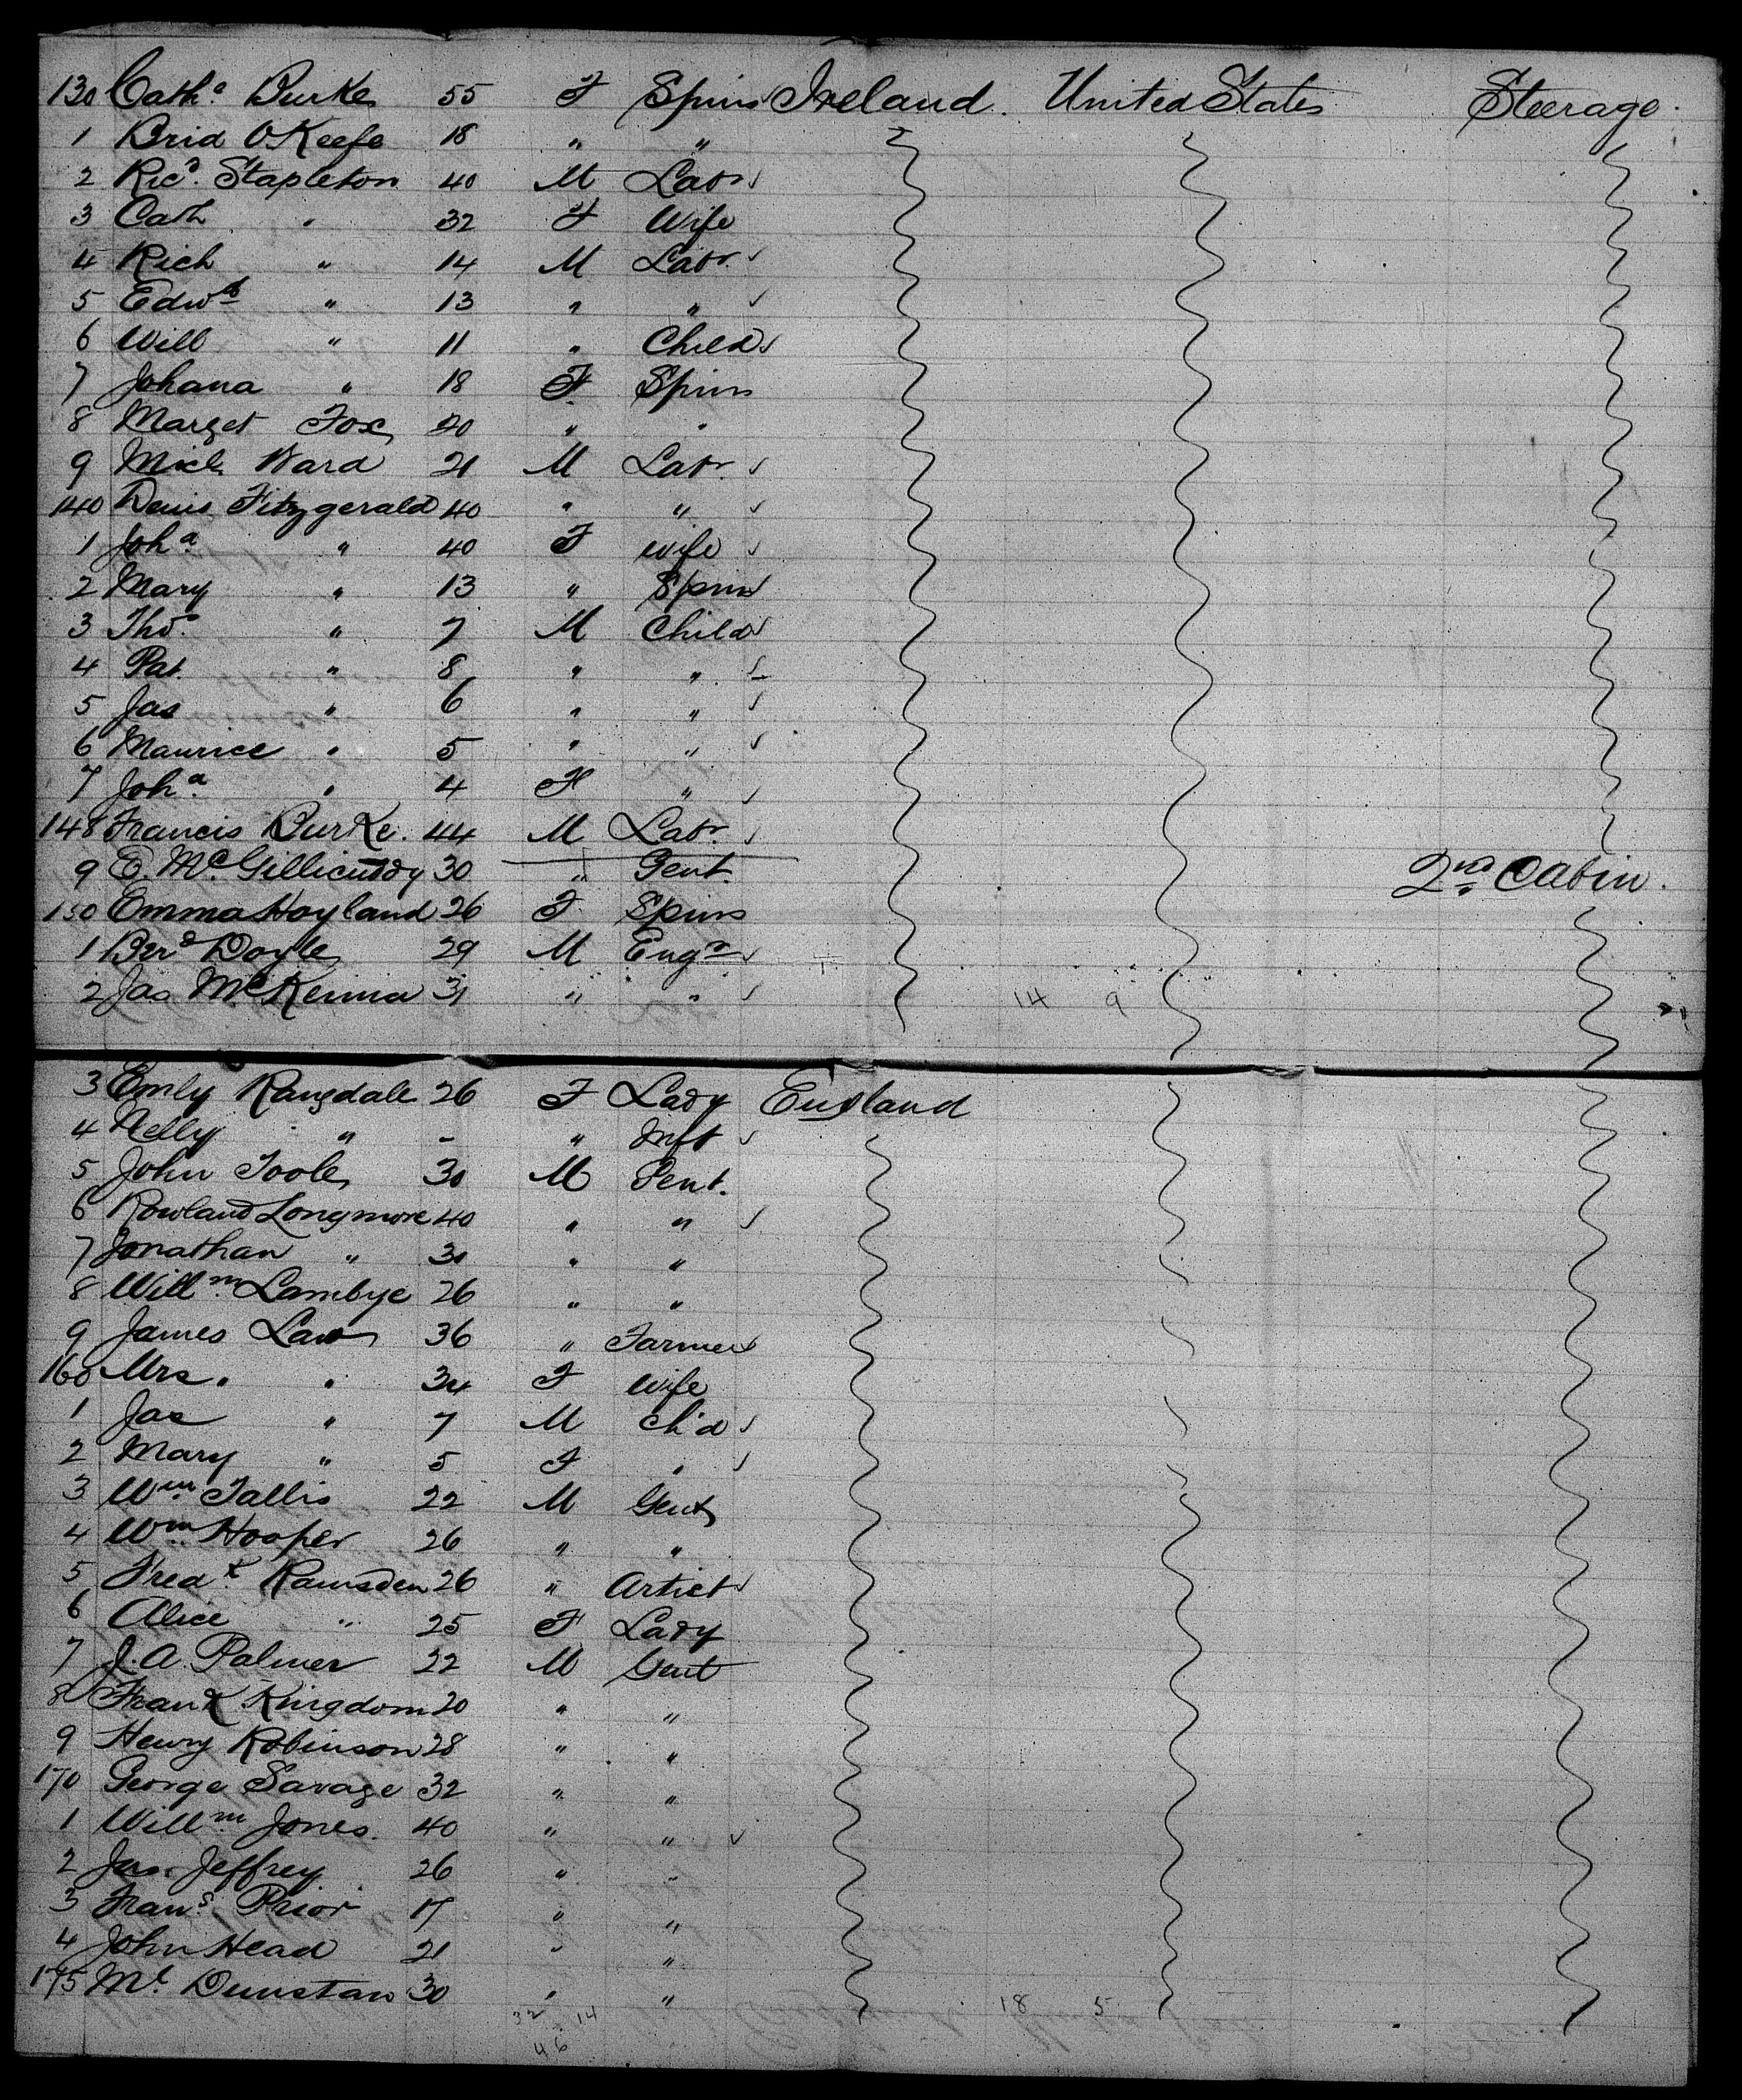 130 Cath.a Burke 55 F Spins Ireland. United States Steerage.
1 Brid O'Keefe 18 " "
2 Ric.d Stapleton 40 M Labr
3 Cath " 32 F Wife
4 Rich " 14 M Labr.
5 Edwd " 13 " "
6 Will " 11 " Child
7 Johana " 18 F Spins
8 Marget Fox 20 " "
9 Mich Ward 21 M Labr.
140 Denis Fitzgerald 40 " "
1 Joh.a " 40 F wife
2 Mary " 13 " Spins
3 Tho.s " 7 M Child
4 Pat. " 8 " "
5 Jas " 6 " "
6 Maurice " 5 " "
7 Joh.a " 4 F "
148 Francis Burke. 44 M Labr.
9 E. McGillicuddy 30 " Gent. 2nd Cabin.
150 Emma Hoyland 26 F Spins
1 Berd Doyle 29 M Engr
2 Jas McKenna 31 " " 14 9
3 Emly Rangdale 26 F Lady England
4 Nelly " - " Inft
5 John Toole 30 M Gent.
6 Rowland Longmore 40 " "
7 Jonathan " 30 " "
8 Will.m Lambye 26 " "
9 James Law 36 " Farmer
160 Mrs. " 34 F Wife
1 Jas " 7 M Ch'd
2 Mary " 5 F "
3 Wm Tallis 22 M Gent
4 Wm Hooper 26 " "
5 Fredk. Ramsden 26 " Artist
6 Alice " 25 F Lady
7 J. A. Palmer 22 M Gent
8 Frank Kingdom 20 " "
9 Henry Robinson 28 " "
170 George Savage 32 " "
1 Will.m Jones. 40 " "
2 Jas. Jeffrey 26 " "
3 Fran.s Prior 17 " "
4 John Head 21 " "
175 Mr. Dunstan 30 " "
32 14 18 5
46